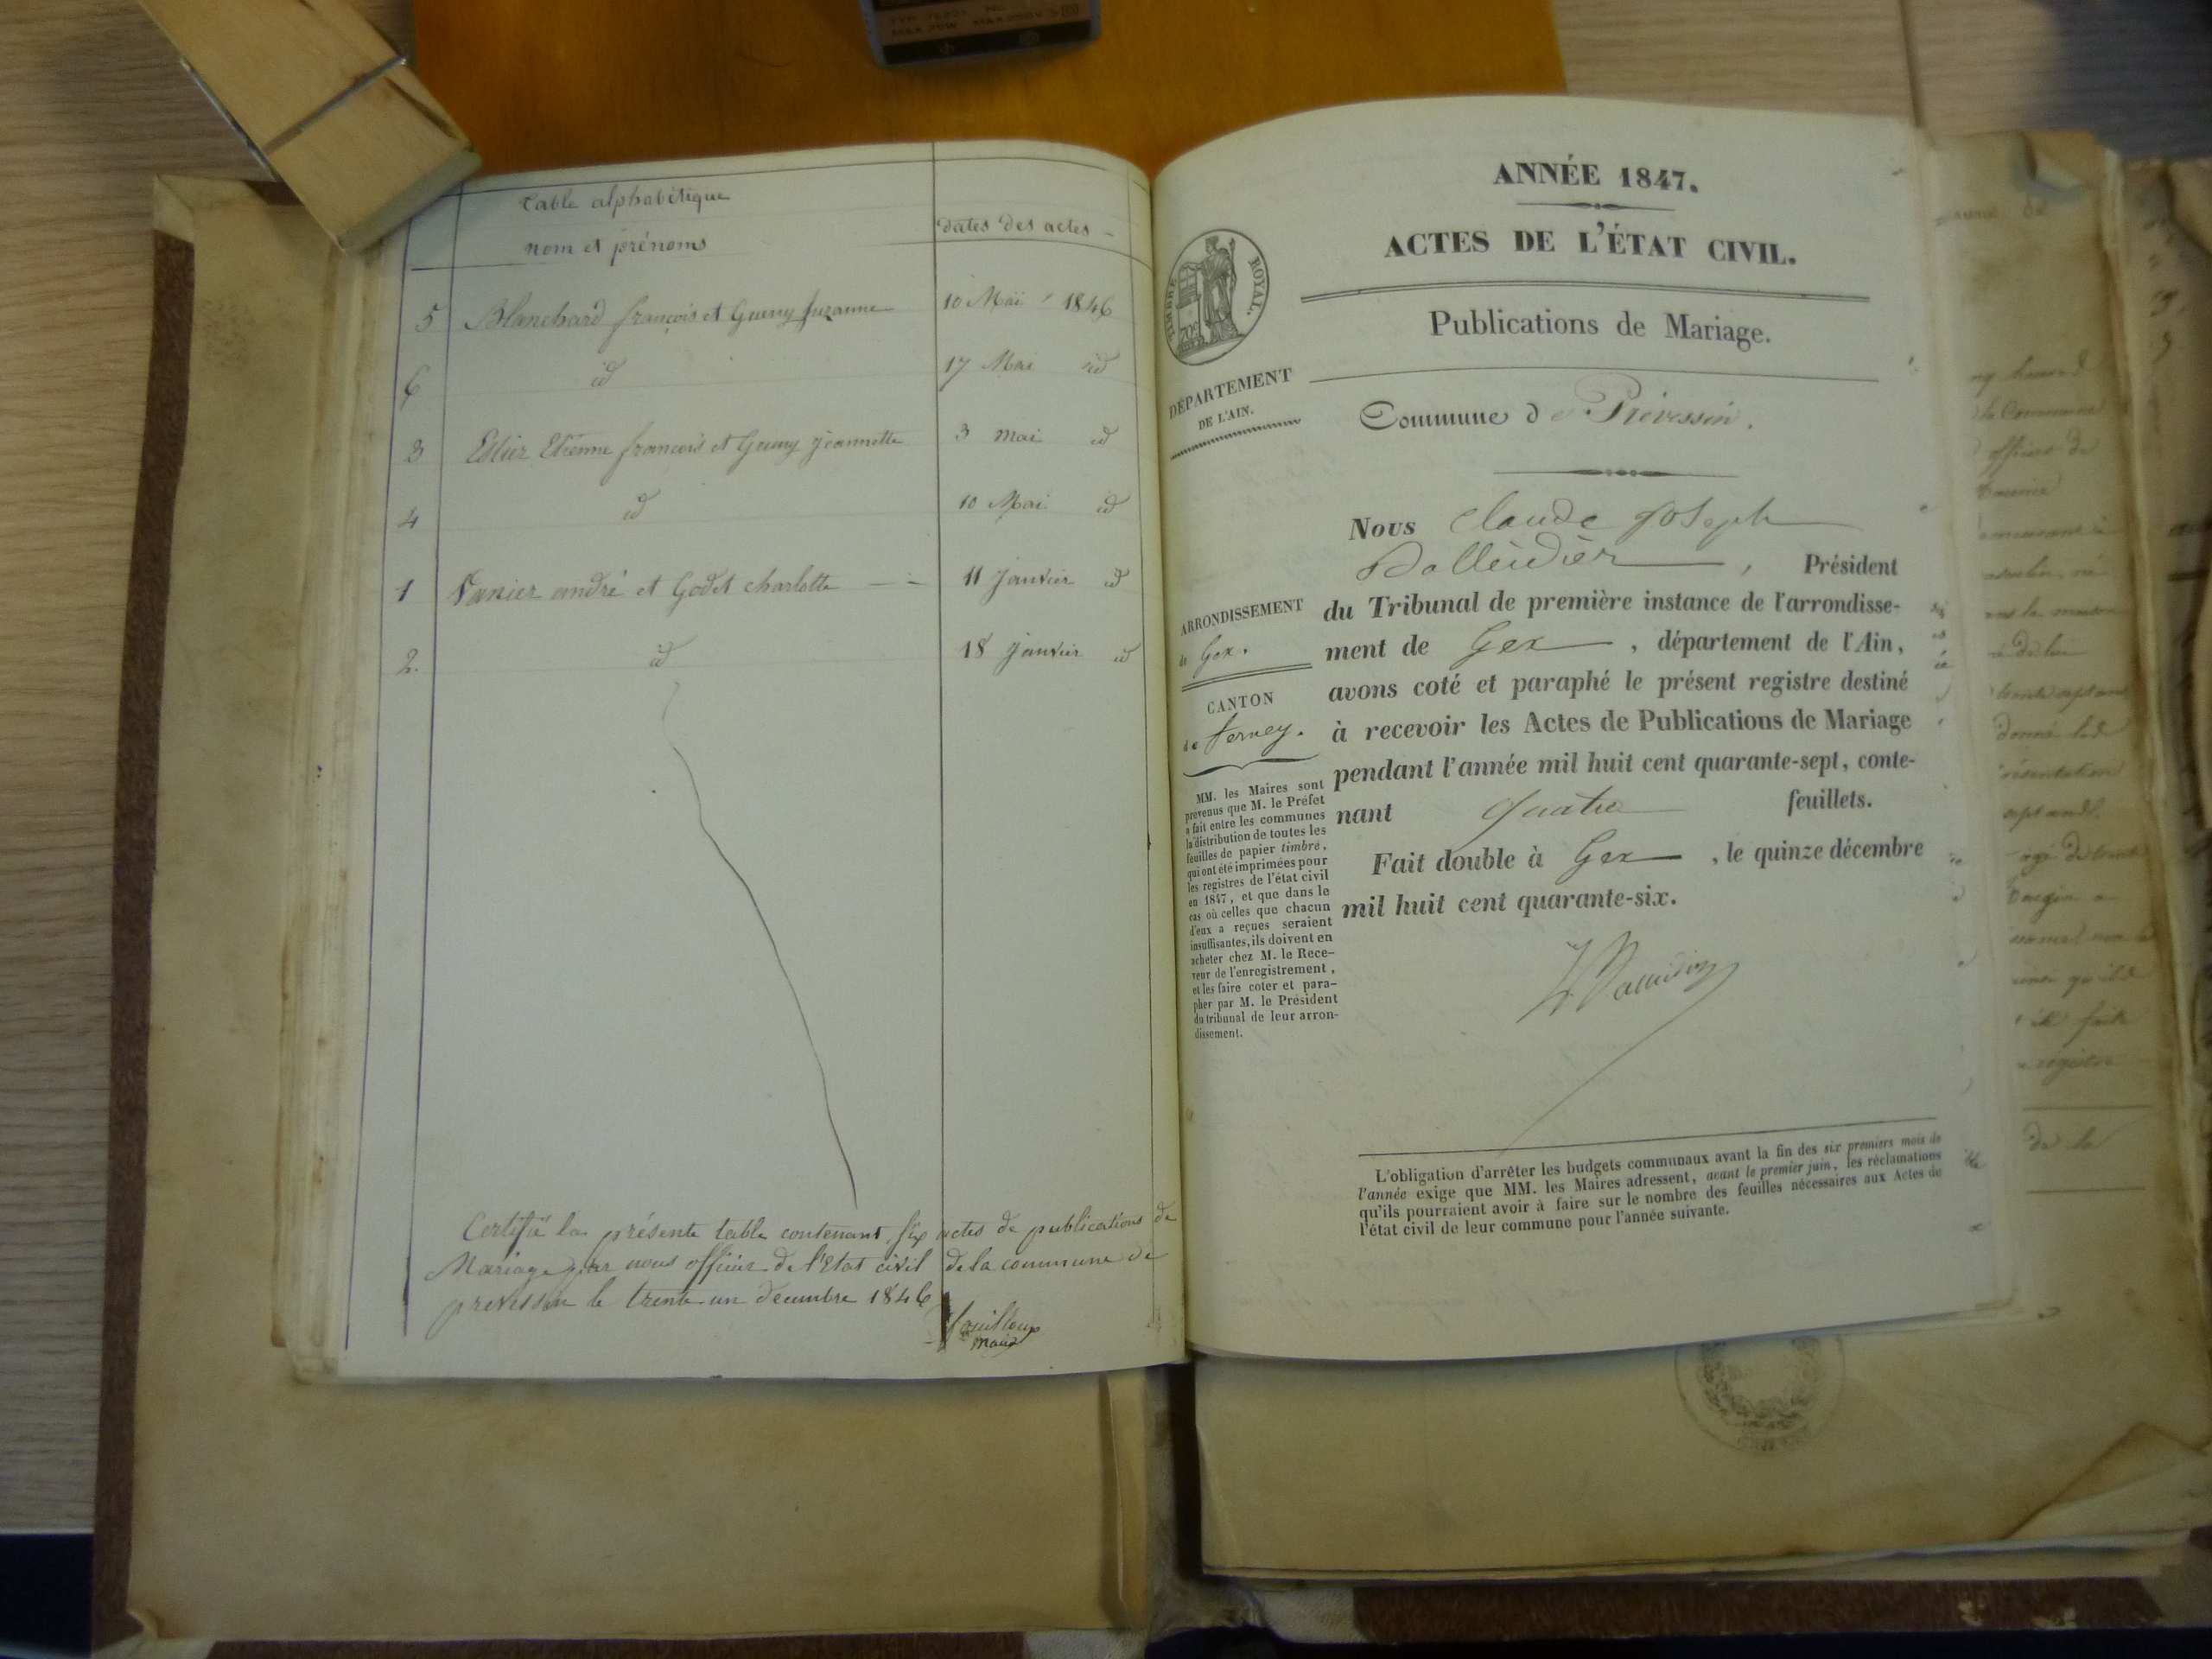 table alphabétique
nom et prénoms
dates des actes
5 Blanchard françois et Gueny suzanne 10 Mai 1846
6 id 17 Mai id
3 Etienne françois et Gueny jeannette 3 mai id
4 id 10 Mai id
1 Vanier andré et Godet charlotte 11 janvier id
2. id 18 janvier id
Certifié la présente table contenant six actes de publications de
Mariage par nous officier de l'Etat civil de la commune de
le trente un decembre 1846
Maire
ANNÉE 1847.
ACTES DE L'ÉTAT CIVIL.
Publications de Mariage.
TIMBRE ROYAL.
70c
DÉPARTEMENT
DE L'AIN.
Commune de Prévessin.
ARRONDISSEMENT
de Gex.
CANTON
de ferney.
MM. les Maires sont
prévenus que M. le Préfet
a fait entre les communes
la distribution de toutes les
feuilles de papier timbré,
qui ont été imprimées pour
les registres de l'état civil
en 1847, et que dans le
cas où celles que chacun
d'eux a reçues seraient
insuffisantes, ils doivent en
acheter chez M. le Rece-
veur de l'enregistrement,
et les faire coter et para-
pher par M. le Président
du tribunal de leur arron-
dissement.
Nous Claude joseph
, Président
du Tribunal de première instance de l'arrondisse-
ment de Gex, département de l'Ain,
avons coté et paraphé le présent registre destiné
à recevoir les Actes de Publications de Mariage
pendant l'année mil huit cent quarante-sept, conte-
nant quatre feuillets.
Fait double à Gex, le quinze décembre
mil huit cent quarante-six.
L'obligation d'arrêter les budgets communaux avant la fin des six premiers mois de
l'année exige que MM. les Maires adressent, avant le premier juin, les réclamations
qu'ils pourraient avoir à faire sur le nombre des feuilles nécessaires aux Actes de
l'état civil de leur commune pour l'année suivante.